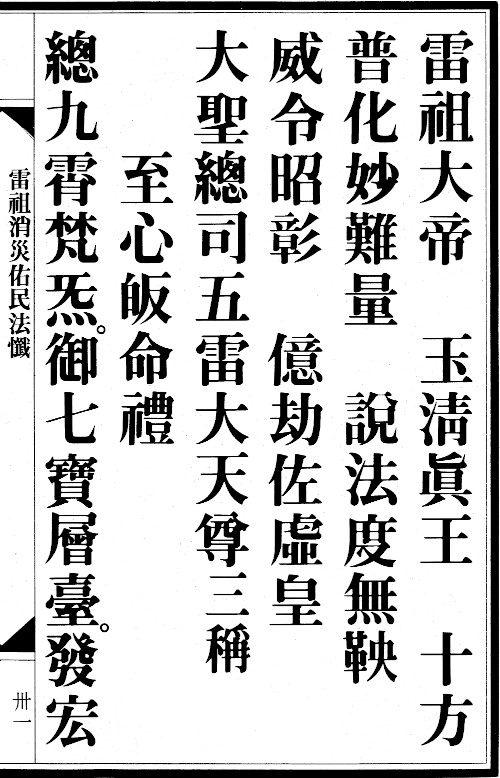 雷祖大帝　玉清眞王　十方
普化妙難量　說法度無鞅
威令昭彰　億劫佐虛皇
大聖總司五雷大天尊三稱
至心皈命禮
總九霄梵炁。御七寶層臺。發宏
雷祖消災佑民法懺
卅一